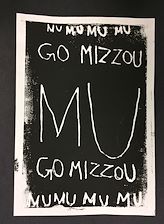 MU MU MU MU
GO MIZZOU
MU
GO MIZZOU
MU MU MU MU